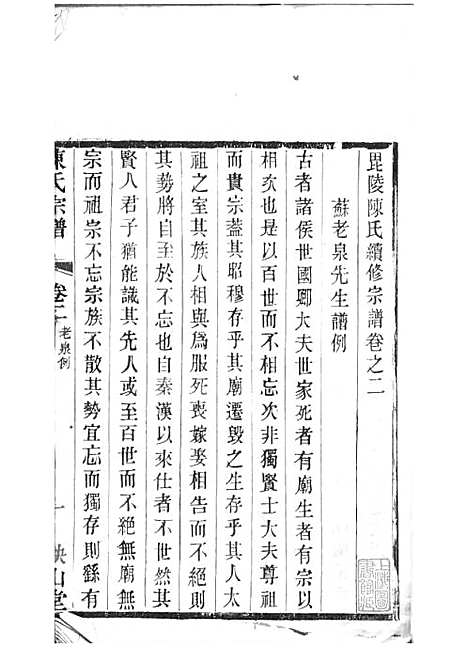 毘陵陳氏續修宗譜卷之二
蘇老泉先生譜例
古者諸侯世國卿大夫世家死者有廟生者有宗以
相次也是以百世而不相忘次非獨賢士大夫尊祖
而貴宗蓋其昭穆存乎其廟遷毀之主存乎其人太
祖之室其族人相與爲服死喪嫁娶相告而不絕則
其勢將自至於不忘也自秦漢以來仕者不世然其
賢人君子猶能識其先人或至百世而不絕無廟無
宗而祖宗不忘宗族不散其勢宜忘而獨存則繇有
陳氏宗譜
卷二
老泉例
一
映山堂